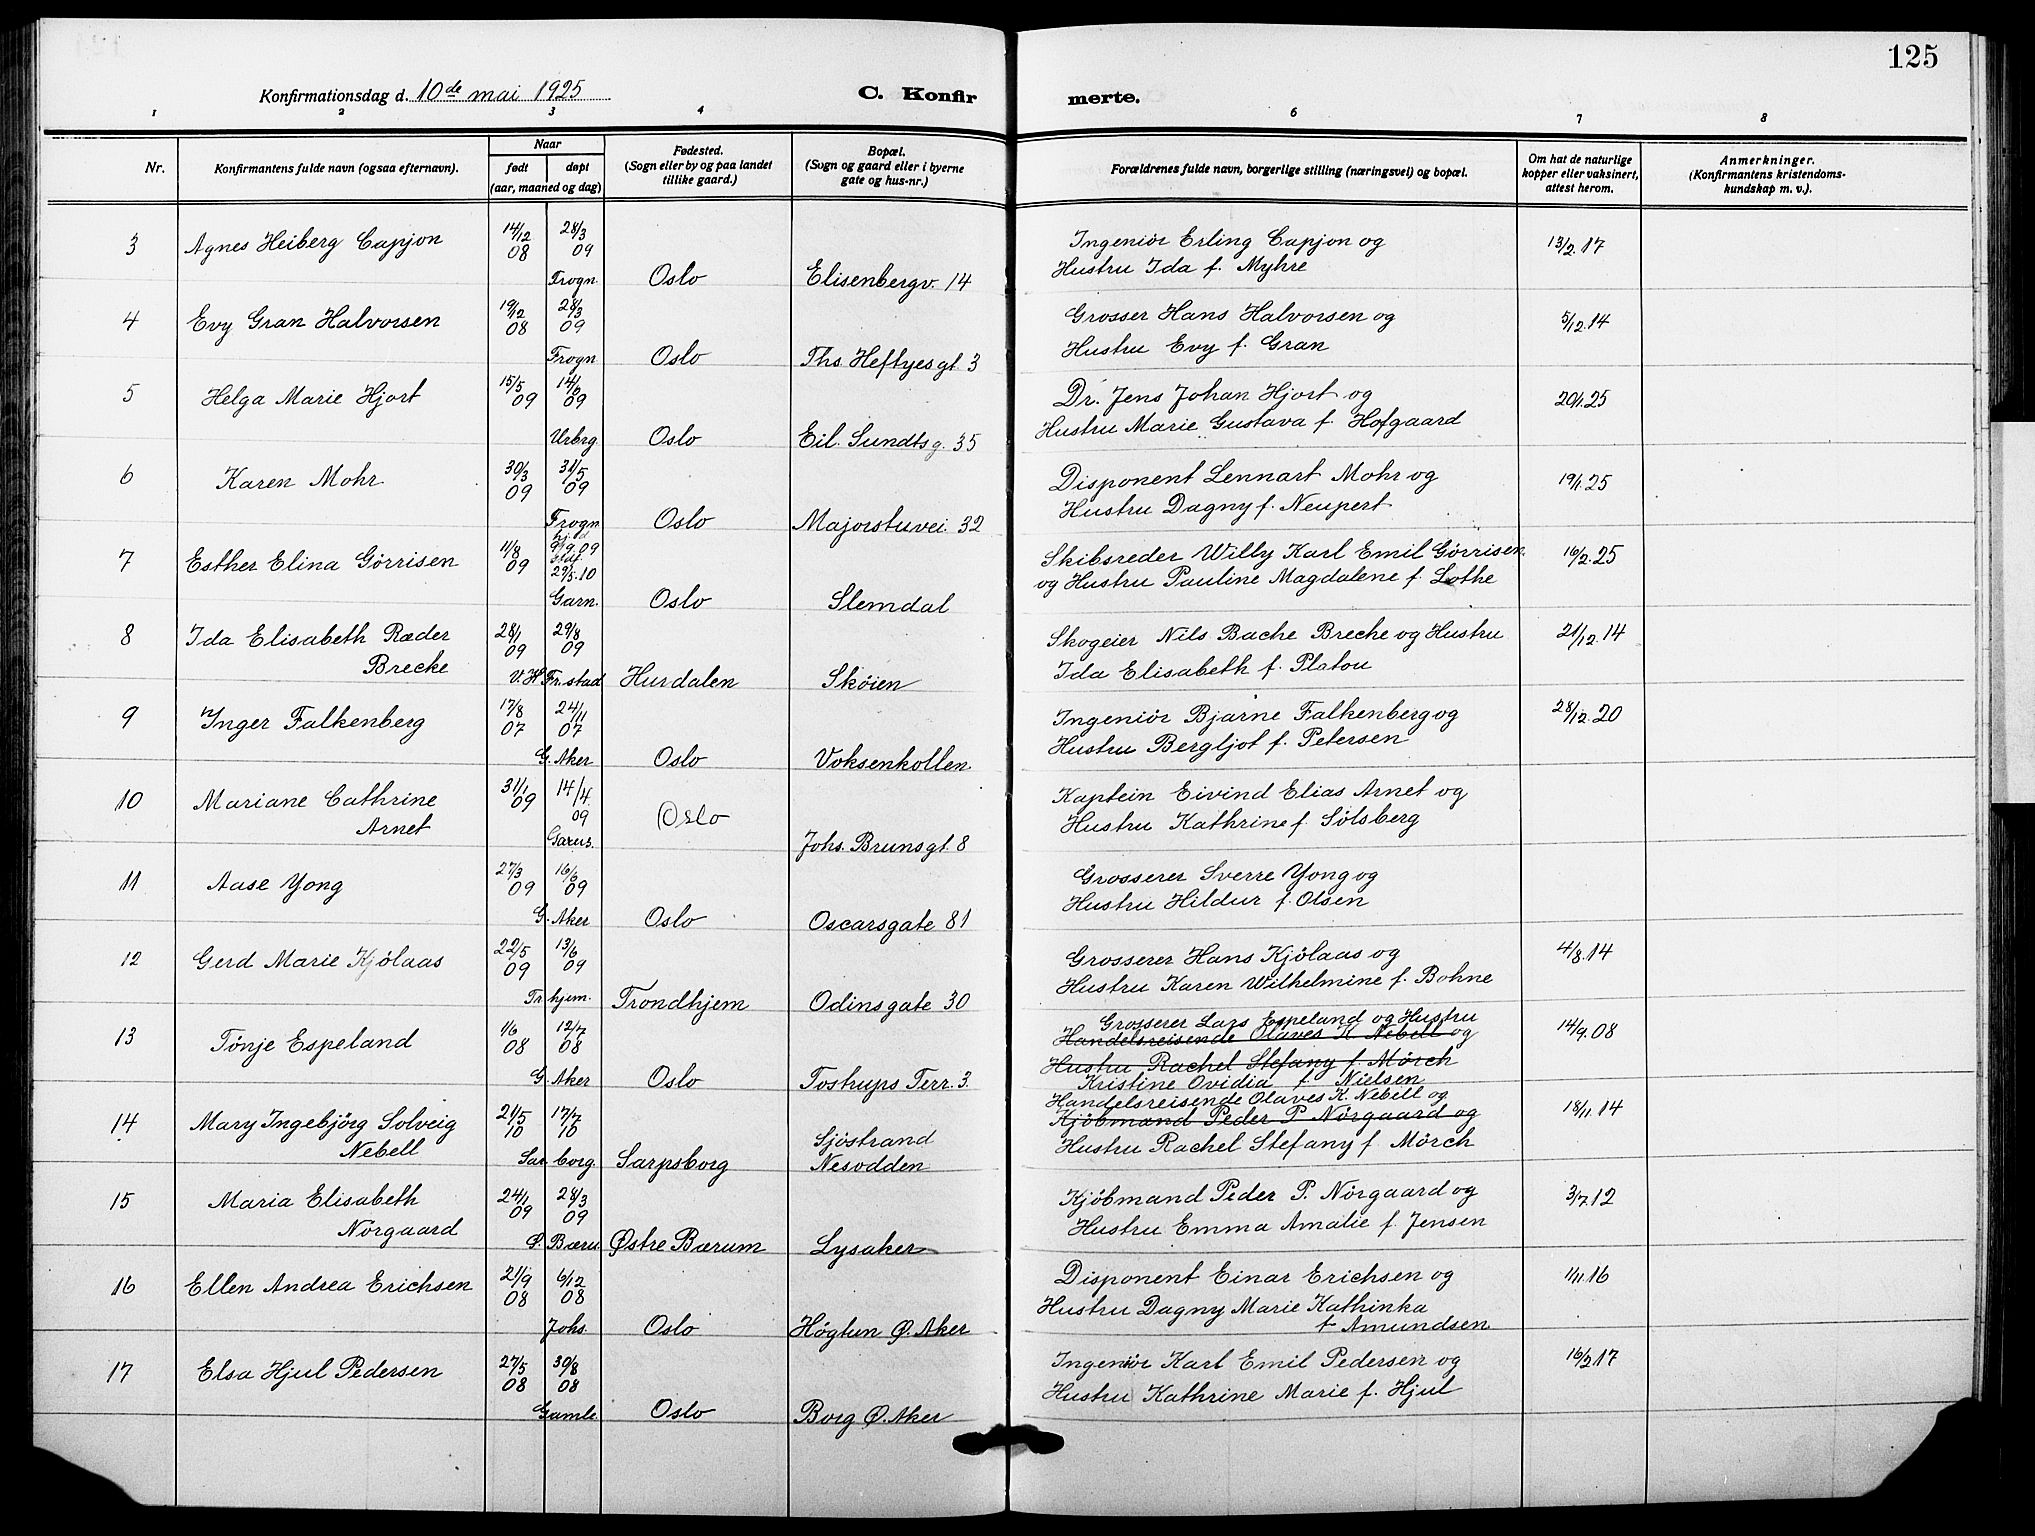 125
Konfirmationsdag d. 10de mai 1925
C. Konfir
merte.
1 2 3 4 6 7 8
Nr.
Konfirmantens fulde navn (ogsaa efternavn).
Naar
født døpt
(aar, maaned og dag)
Fødested.
(Sogn eller by og paa landet
tillike gaard.)
Bopæl.
(Sogn og gaard eller i byerne
gate og hus-nr.)
Forældrenes fulde navn, borgerlige stilling (næringsvei) og bopæl.
Om hat de naturlige
kopper eller vaksinert,
attest herom.
Anmerkninger.
(Konfirmantens kristendoms-
kundskap m. v.)
3 Agnes Heiberg Capjon 14/12 08 28/3 09 Ingeniör Erling Capjon og 13/2.17
Frogn Oslo Elisenbergv. 14 Hustru Ida f. Myhre
4 Evy Gran Halvorsen 19/12 08 28/3 09 Grosser Hans Halvorsen og 5/12.14
Frogn Oslo Ths. Heftyes gt 3 Hustru Evy f. Gran
5 Helga Marie Hjort 15/5 09 09 Dr. Jens Johan Hjort og 20/1.25
Urbrg Oslo Eil. Sundts g. 35 Hustru Marie Gustava f. Hofgaard
6 Karen Mohr 30/3 09 31/5 09 Disponent Lennart Mohr og 19/1.25
Frogn Oslo Majorstuvei. 32 Hustru Dagny f. Neupert
7 Esther Elina Görrisen 11/8 09 hj.d 9/9.09 stdf. 29/5.10 Skibsreder Willy Karl Emil Görrisen 16/2.25
Garn. Oslo Slemdal og Hustru Pauline Magdalene f. Lothe
8 Ida Elisabeth Ræder 28/1 09 29/8 09 Skogeier Nils Bache Brecke og Hustru 21/12.14
Brecke V. Fr. stad Hurdalen Sköien Ida Elisabeth f. Platou
9 Inger Falkenberg 17/8 07 24/11 07 Ingeniör Bjarne Falkenberg og 28/12.20
G. Aker Oslo Voksenkollen Hustru Bergljot f. Petersen
10 Mariane Cathrine 31/1 09 14/4. 09 Kaptein Eivind Elias Arnet og
Arnet Oslo Johs. Bruns gt. 8 Hustru Kathrine f. Sölsberg
11 Aase Yong 27/3 09 16/6 09 Grosserer Sverre Yong og
G. Aker Oslo Oscarsgate 81 Hustru Hildur f. Olsen
12 Gerd Marie Kjölaas 22/5 09 13/6 09 Grosserer Hans Kjölaas og 4/8.14
Tr. hjem. Trondhjem Odinsgate 30 Hustru Karen Wilhelmine f. Bohne
Grosserer Lars Espeland og Hustru
13 Tönje Espeland 1/6 08 12/7 08 Handelsreisende Olaves K. Nebell og 14/9.08
Hustru Rachel Stefany f. Mörch
G. Aker Oslo Tostrups Terr. 3. Kristine Ovidia f. Nielsen
Handelsreisende Olaves K. Nebell og
14 Mary Ingebjörg Solveig 21/5 10 17/7 10 Kjöbmand Peder P. Nörgaard og 18/11.14
Nebell Sar. borg. Sarpsborg Sjöstrand Nesodden Hustru Rachel Stefany f. Mörch
15 Maria Elisabeth 24/1 09 28/3 09 Kjöbmand Peder P. Nörgaard og 3/7.12
Nörgaard Ø. Bæru. Østre Bærum Lysaker Hustru Emma Amalie f. Jensen
16 Ellen Andrea Erichsen 21/9 08 6/12 08 Disponent Einar Erichsen og 1/11.16
Johs. Oslo Högtun Ø. Aker Hustru Dagny Marie Kathinka
f Amundsen
17 Elsa Hjul Pedersen 27/5 08 30/8 08 Ingeniör Karl Emil Pedersen og 16/2.17
Gamle. Oslo Borg Ø. Aker Hustru Kathrine Marie f. Hjul